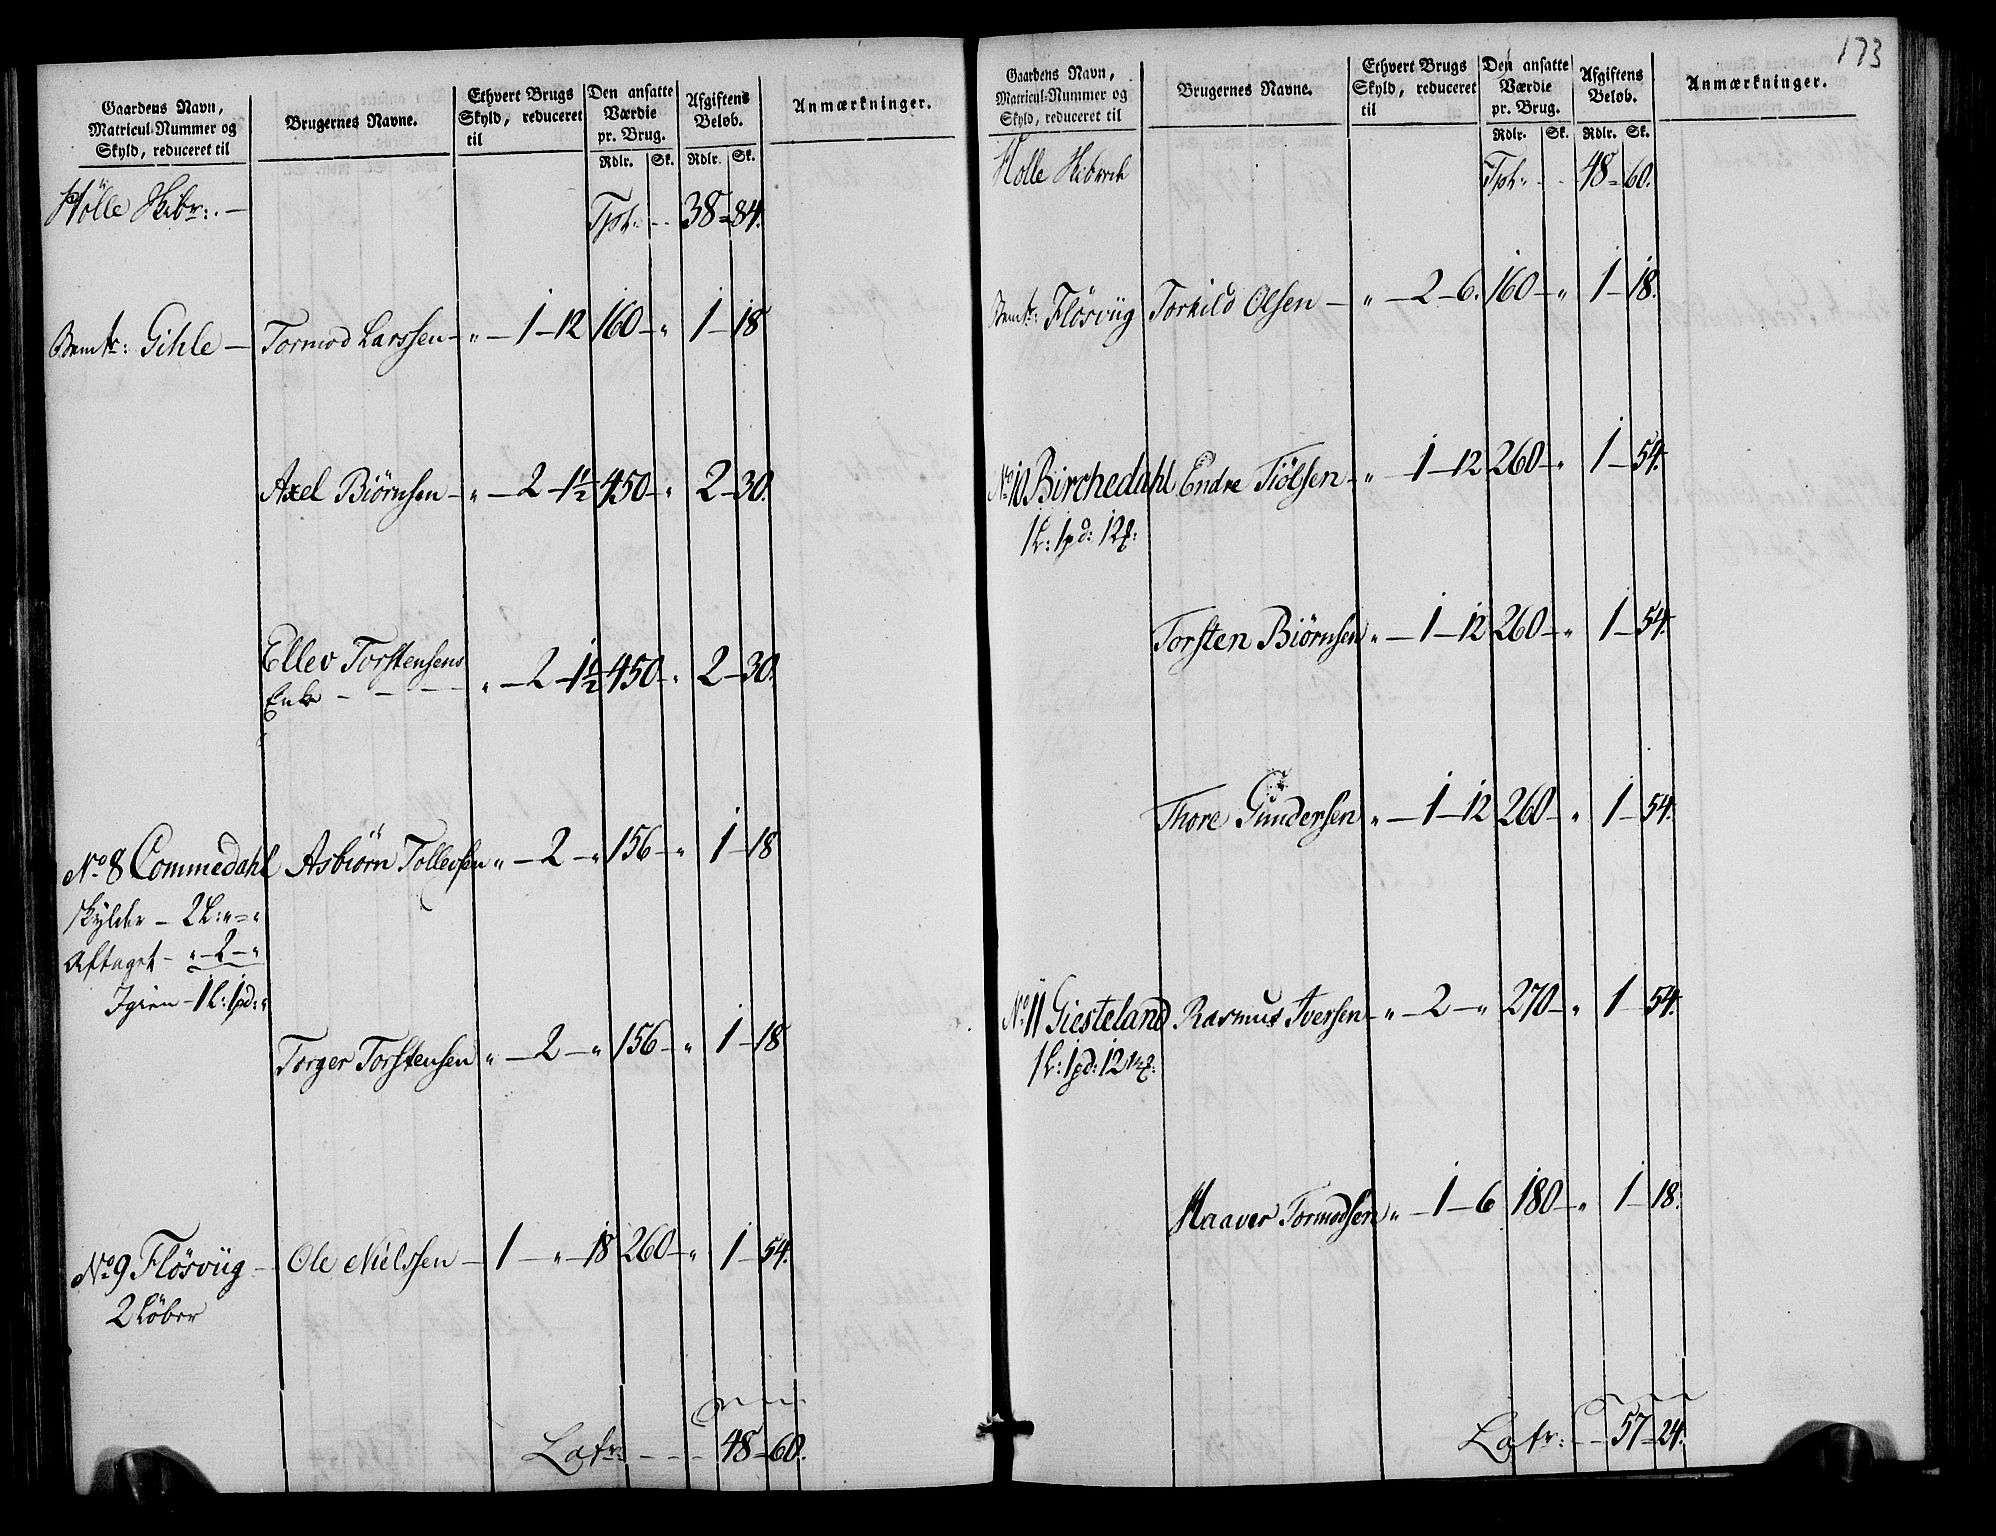 Gaardens Navn,
Matricul-Nummer og
Skyld, reduceret til
Brugernes Navne.
Ethvert Brugs
Skyld, reduceret
til
Den ansatte
Værdie
pr. Brug.
Rdlr. Sk.
Afgiftens
Beløb.
Rdlr. Sk.
Anmærkninger.
Hölle Skibr:. —
Tpt. - - 38 = 84.
Bemte: Gihle — Tormod Larssen — „ — 1 — 12 160 — „ 1 — 18
Axel Biörnsen — „ — 2 — 1½ 450 — „ 2 — 30.
Ellev Torstensens
Enke - - - - „ — 2 — 1½ 450 — „ 2 — 30.
No 8 Commedahl Asbiörn Tollevsen „ — 2 — „ 156 — „ 1 — 18
skylder — 2 L: „ = „
Aftaget — „ — 2 — „
Igien — 1 L: 1 pd: „
Torger Torstensen „ — 2 — „ 156 — „ 1 — 18
No 9 Flösviig — Ole Nielssen — 1 — „ — 18 260 — „ 1 — 54.
2 Löber
Latr: - - - 48 — 60.
173
Gaardens Navn,
Matricul-Nummer og
Skyld, reduceret til
Brugernes Navne.
Ethvert Brugs
Skyld, reduceret
til
Den ansatte
Værdie
pr. Brug.
Rdlr. Sk.
Afgiftens
Beløb.
Rdlr. Sk.
Anmærkninger.
Holle Skibrede
Tpt. - - 48 = 60.
Bemte: Flösviig Torkild Olsen — „ — 2 — 6. 160 — „ 1 — 18.
No 10 Birchedahl Endre Tiölsen — „ — 1 — 12 260 — „ 1 — 54.
1 L: 1 pd: 12
Torsten Biörnsen „ — 1 — 12 260 — „ 1 — 54.
Thore Gundersen „ — 1 — 12 260 — „ 1 — 54.
No 11 Giesteland Rasmus Iversen — „ — 2 — „ 270 — „ 1 — 54.
1 L: 1 pd: 12
Haaver Tormodsen „ — 1 — 6 180 — „ 1 — 18.
Latr: - - 57 = 24.